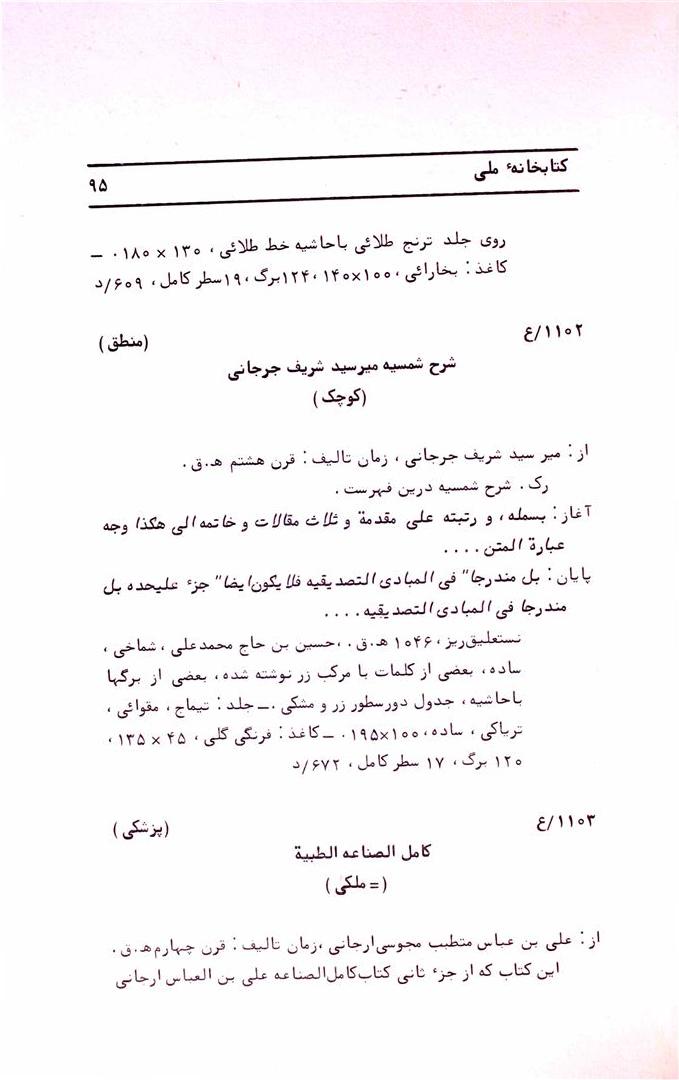 کتابخانهٔ ملی
۹۵
روی جلد ترنج طلائی باحاشیه خط طلائی ، ۱۳۰ × ۱۸۰ ۰ ــ
کاغذ : بخارائی ، ۱۰۰×۱۴۰ ، ۱۲۴برگ ، ۱۹سطر کامل ، ۶۰۹/د
۱۱۰۲/ع
(منطق)
شرح شمسیه میرسید شریف جرجانی
(کوچک)
از : میر سید شریف جرجانی ، زمان تالیف : قرن هشتم ه‍ .ق .
رک . شرح شمسیه درین فهرست .
آغاز : بسمله ، و رتبته علی مقدمة و ثلاث مقالات و خاتمه الی هکذا وجه
عبارة المتن ....
پایان : بل مندرجا" فی المبادی التصدیقیه فلایکون ایضا" جزء علیحده بل
مندرجا فی المبادی التصدیقیه ....
نستعلیق‌ریز ، ۱۰۴۶ ه‍ .ق . ،حسین بن حاج محمدعلی ، شماخی ،
ساده ، بعضی از کلمات با مرکب زر نوشته شده ، بعضی از برگها
باحاشیه ، جدول دورسطور زر و مشکی .ــ جلد : تیماج ، مقوائی ،
تریاکی ، ساده ، ۱۰۰×۱۹۵ ۰ ــ کاغذ : فرنگی گلی ، ۴۵ × ۱۳۵ ،
۱۲۰ برگ ، ۱۷ سطر کامل ، ۶۷۲/د
۱۱۰۳/ع
(پزشکی)
کامل الصناعه الطبیة
(= ملکی)
از : علی بن عباس متطبب مجوسی‌ارجانی ،زمان تالیف : قرن چهارم ه‍ .ق .
این کتاب که از جزء ثانی کتاب‌کامل‌الصناعه علی بن العباس ارجانی